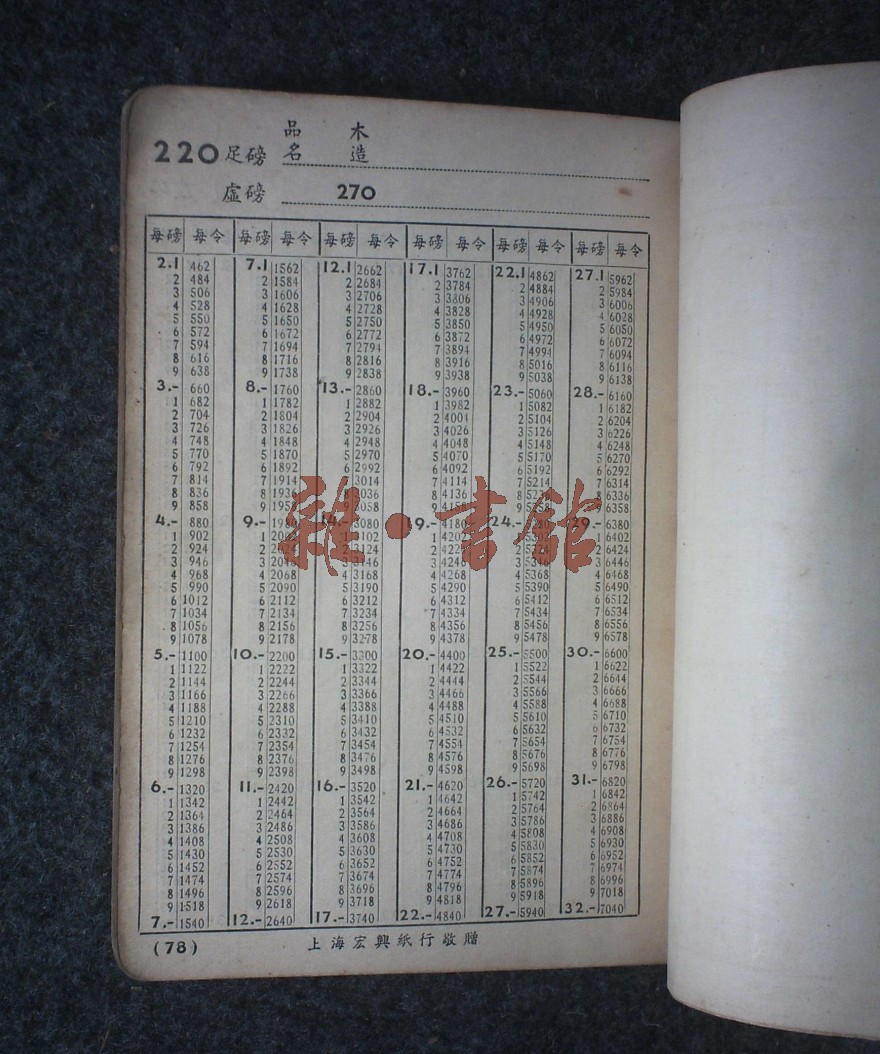 220 足磅 品名 木造
虛磅 270
每磅 每令 每磅 每令 每磅 每令 每磅 每令 每磅 每令 每磅 每令
2.1 462 7.1 1562 12.1 2662 17.1 3762 22.1 4862 27.1 5962
2 484 2 1584 2 2684 2 3784 2 4884 2 5984
3 506 3 1606 3 2706 3 3806 3 4906 3 6006
4 528 4 1628 4 2728 4 3828 4 4928 4 6028
5 550 5 1650 5 2750 5 3850 5 4950 5 6050
6 572 6 1672 6 2772 6 3872 6 4972 6 6072
7 594 7 1694 7 2794 7 3894 7 4994 7 6094
8 616 8 1716 8 2816 8 3916 8 5016 8 6116
9 638 9 1738 9 2838 9 3938 9 5038 9 6138
3.- 660 8.- 1760 13.- 2860 18.- 3960 23.- 5060 28.- 6160
1 682 1 1782 1 2882 1 3982 1 5082 1 6182
2 704 2 1804 2 2904 2 4004 2 5104 2 6204
3 726 3 1826 3 2926 3 4026 3 5126 3 6226
4 748 4 1848 4 2948 4 4048 4 5148 4 6248
5 770 5 1870 5 2970 5 4070 5 5170 5 6270
6 792 6 1892 6 2992 6 4092 6 5192 6 6292
7 814 7 1914 7 3014 7 4114 7 5214 7 6314
8 836 8 1936 8 3036 8 4136 8 8 6336
9 858 9 1958 9 3058 9 9 9 6358
4.- 880 9.- 14.- 3080 19.- 4180 24.- 29.- 6380
1 902 1 1 3102 1 4202 1 1 6402
2 924 2 2 3124 2 2 2 6424
3 946 3 3 3146 3 4246 3 5346 3 6446
4 968 4 2068 4 3168 4 4268 4 5368 4 6468
5 990 5 2090 5 3190 5 4290 5 5390 5 6490
6 1012 6 2112 6 3212 6 4312 6 5412 6 6512
7 1034 7 2134 7 3234 7 4334 7 5434 7 6534
8 1056 8 2156 8 3256 8 4356 8 5456 8 6556
9 1078 9 2178 9 3278 9 4378 9 5478 9 6578
5.- 1100 10.- 2200 15.- 3300 20.- 4400 25.- 5500 30.- 6600
1 1122 1 2222 1 3322 1 4422 1 5522 1 6622
2 1144 2 2244 2 3344 2 4444 2 5544 2 6644
3 1166 3 2266 3 3366 3 4466 3 5566 3 6666
4 1188 4 2288 4 3388 4 4488 4 5588 4 6688
5 1210 5 2310 5 3410 5 4510 5 5610 5 6710
6 1232 6 2332 6 3432 6 4532 6 5632 6 6732
7 1254 7 2354 7 3454 7 4554 7 5654 7 6754
8 1276 8 2376 8 3476 8 4576 8 5676 8 6776
9 1298 9 2398 9 3498 9 4598 9 5698 9 6798
6.- 1320 11.- 2420 16.- 3520 21.- 4620 26.- 5720 31.- 6820
1 1342 1 2442 1 3542 1 4642 1 5742 1 6842
2 1364 2 2464 2 3564 2 4664 2 5764 2 6864
3 1386 3 2486 3 3586 3 4686 3 5786 3 6886
4 1408 4 2508 4 3608 4 4708 4 5808 4 6908
5 1430 5 2530 5 3630 5 4730 5 5830 5 6930
6 1452 6 2552 6 3652 6 4752 6 5852 6 6952
7 1474 7 2574 7 3674 7 4774 7 5874 7 6974
8 1496 8 2596 8 3696 8 4796 8 5896 8 6996
9 1518 9 2618 9 3718 9 4818 9 5918 9 7018
7.- 1540 12.- 2640 17.- 3740 22.- 4840 27.- 5940 32.- 7040
(78) 上海宏興紙行敬贈
雜·書館